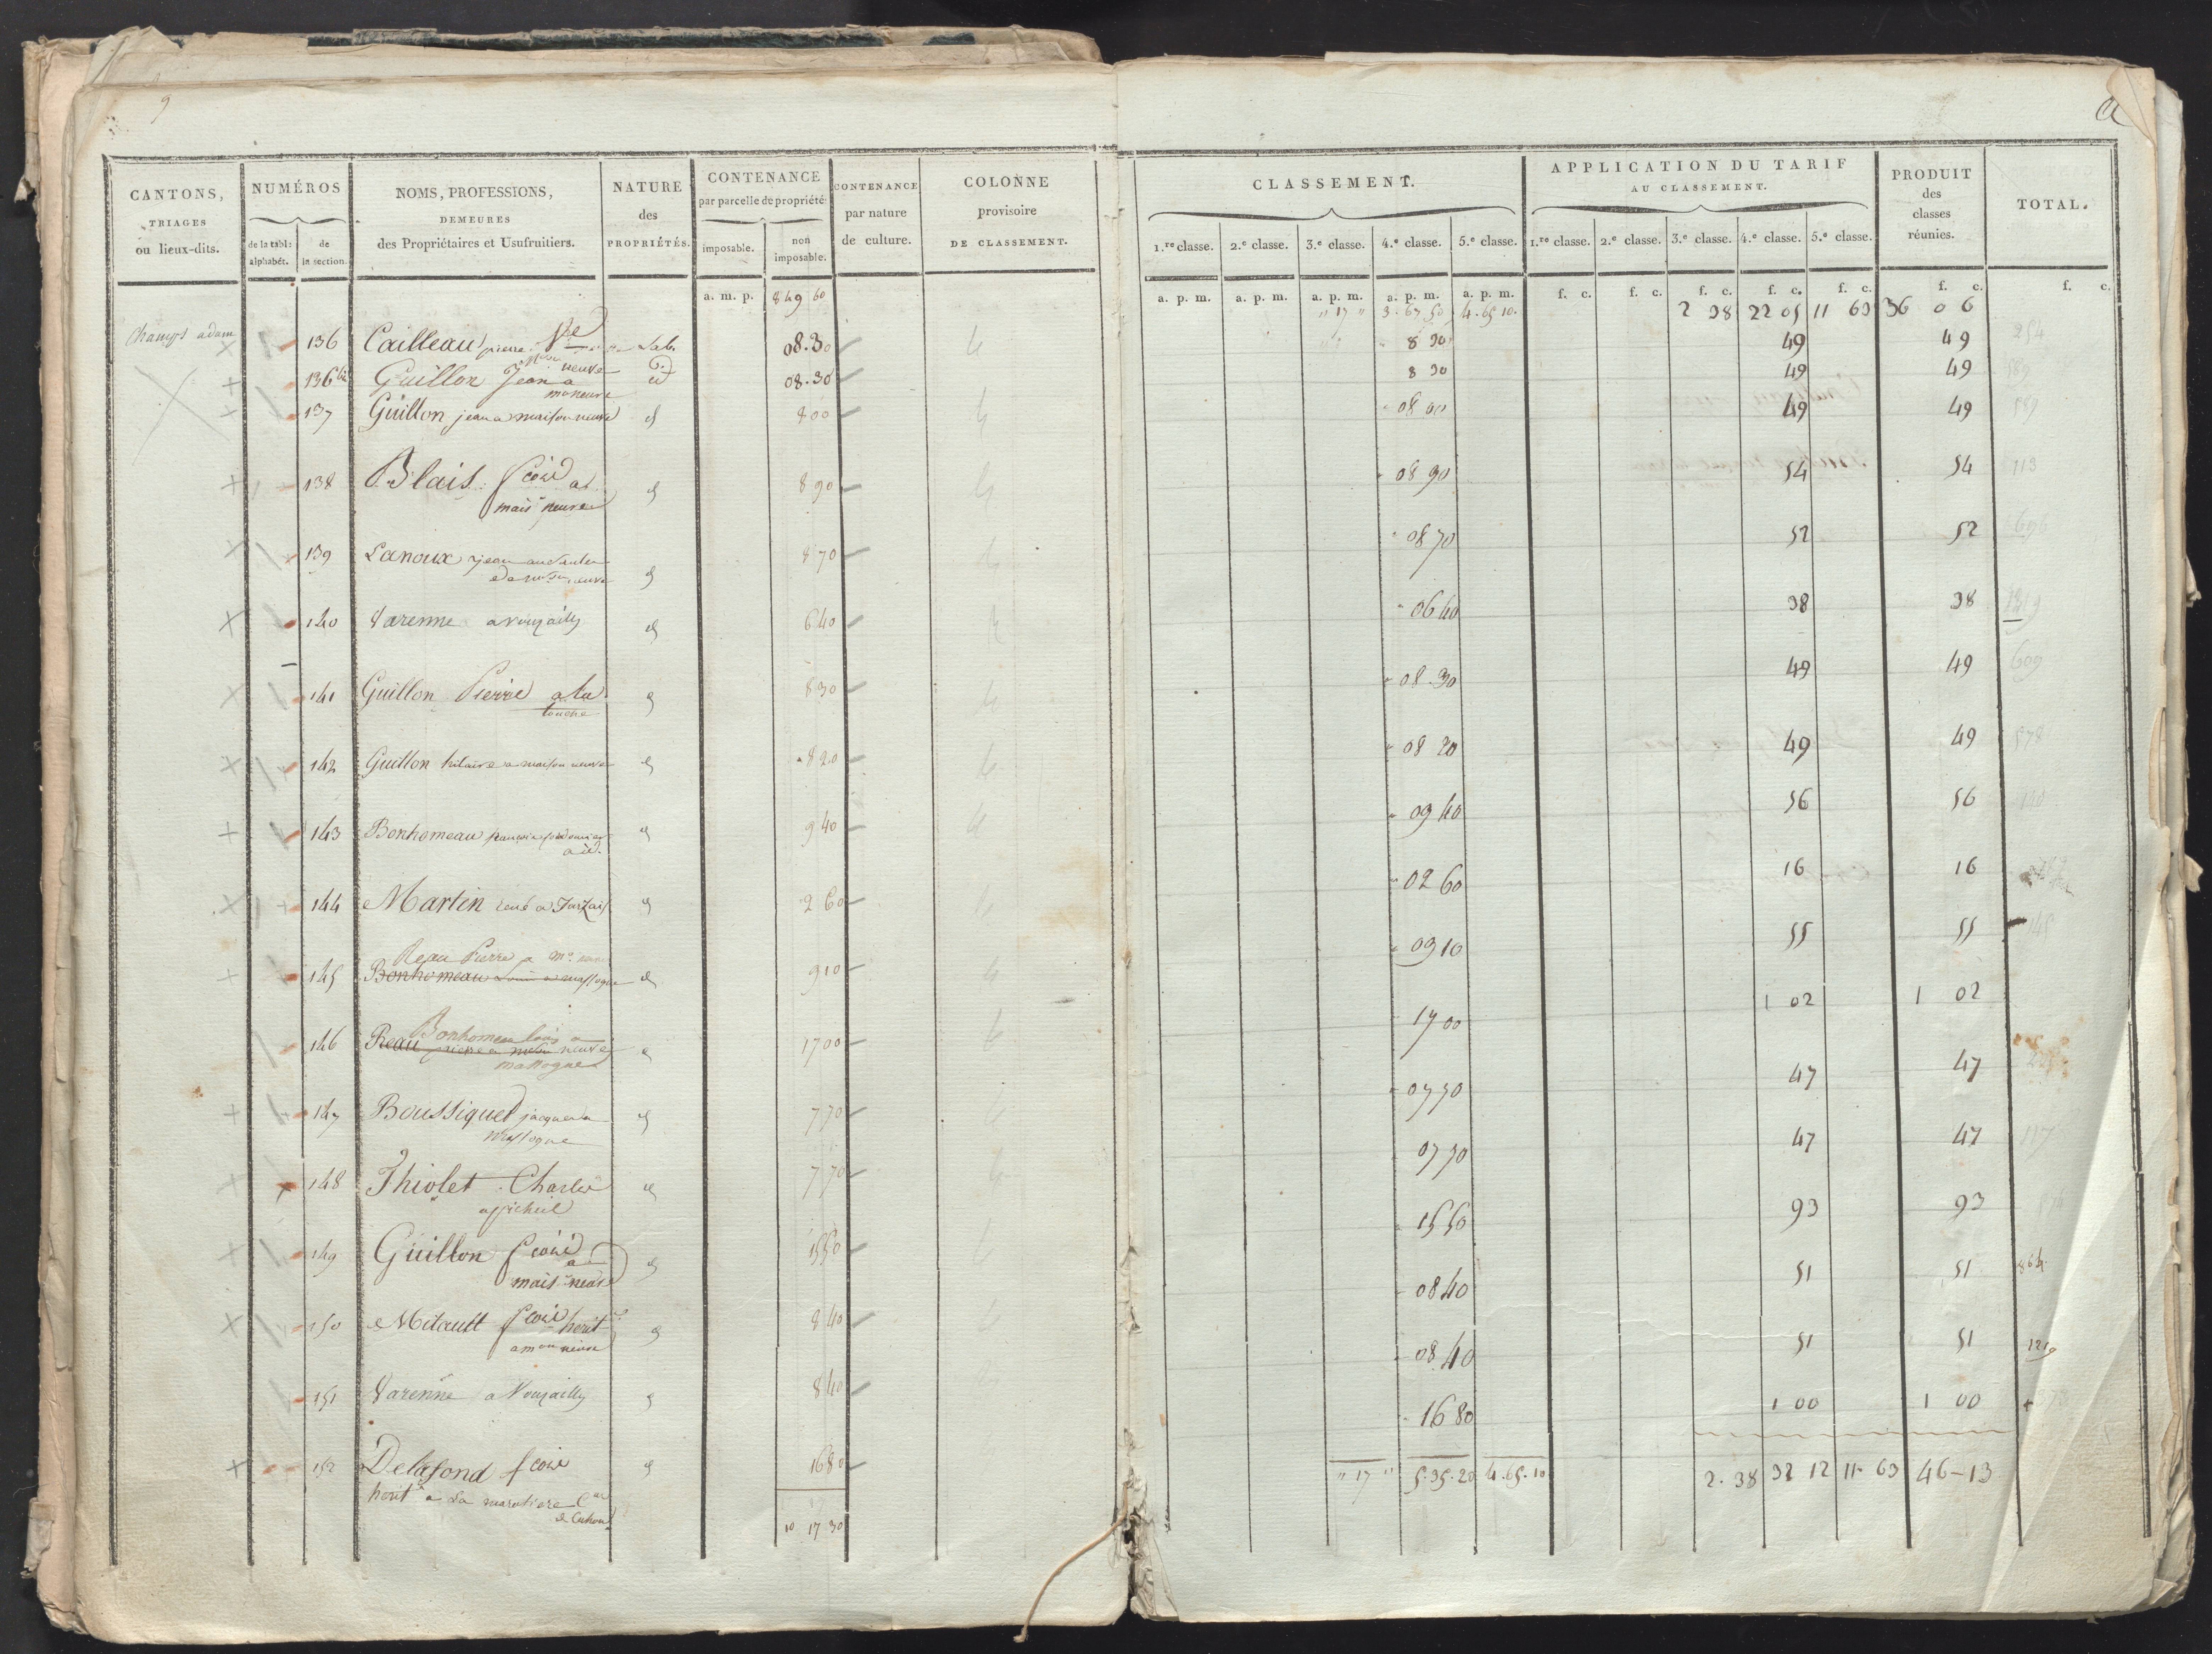 9
CANTONS,
TRIAGES
ou lieux-dits.
NUMÉROS
de la tabl: alphabét.
de la section.
NOMS, PROFESSIONS,
DEMEURES
des Propriétaires et Usufruitiers.
NATURE
des
PROPRIÉTÉS.
CONTENANCE
par parcelle de propriété
imposable.
non imposable.
CONTENANCE
par nature
de culture.
COLONNE
provisoire
DE CLASSEMENT.
CLASSEMENT.
1.re classe. 2.e classe. 3.e classe. 4.e classe. 5.e classe.
APPLICATION DU TARIF
AU CLASSEMENT.
1.re classe. 2.e classe. 3.e classe. 4.e classe. 5.e classe.
PRODUIT
des
classes
réunies.
TOTAL.
a. m. p. 8 49 60
a. p. m. a. p. m. a. p. m. a. p. m. a. p. m. f. c. f. c. f. c. f. c. f. c. f. c. f. c.
" 17 " 3. 67 50 4. 65 10. 2 38 22 05 11 63 36 06
Champs adam 136 Cailleau pierre Ve Lab. 08.30 8 30 49 49 254
136 bis Guillon Jean a maison neuve id 08.30 8 30 49 49
137 Guillon jean a maison neuve id 8 00 08 00 49 49
138 Blais fcois a id 8 90 08 90 54 54 113
mais neuve
139 Lanoux jean id 8 70 08 70 52 52 696
140 Varenne a Vouzailly id 6 40 06 40 38 38
141 Guillon Pierre a la id 8 30 08 30 49 49 609
touche
142 Guillon hilaire a maison neuve id 8 20 08 20 49 49 578
143 Bonhomeau id 9 40 09 40 56 56
a id.
144 Martin réné a Jarzais id 2 60 02 60 16 16
Reau Pierre a
145 Bonhomeau Louis a massogne id 9 10 09 10 55 55
Bonhomeau loüis a
146 Reau pierre a maison neuve id 17 00 17 00 1 02 1 02
massogne
147 Boussiquet jacques a id 7 70 07 70 47 47
massogne
148 Thiolet Charles id 7 70 07 70 47 47 117
149 Guillon fcois a id 15 50 15 50 93 93
mais neuve
150 Mitault fcois herit id 8 40 08 40 51 51 864
151 Varenne a Vouzailly id 8 40 08 40 51 51 1219
152 Delafond fcois id 16 80 16 80 1 00 1 00
herit a La
10 17 30
" 17 " 5. 35. 20 4. 65. 10 2. 38 32 12 11. 63 46-13